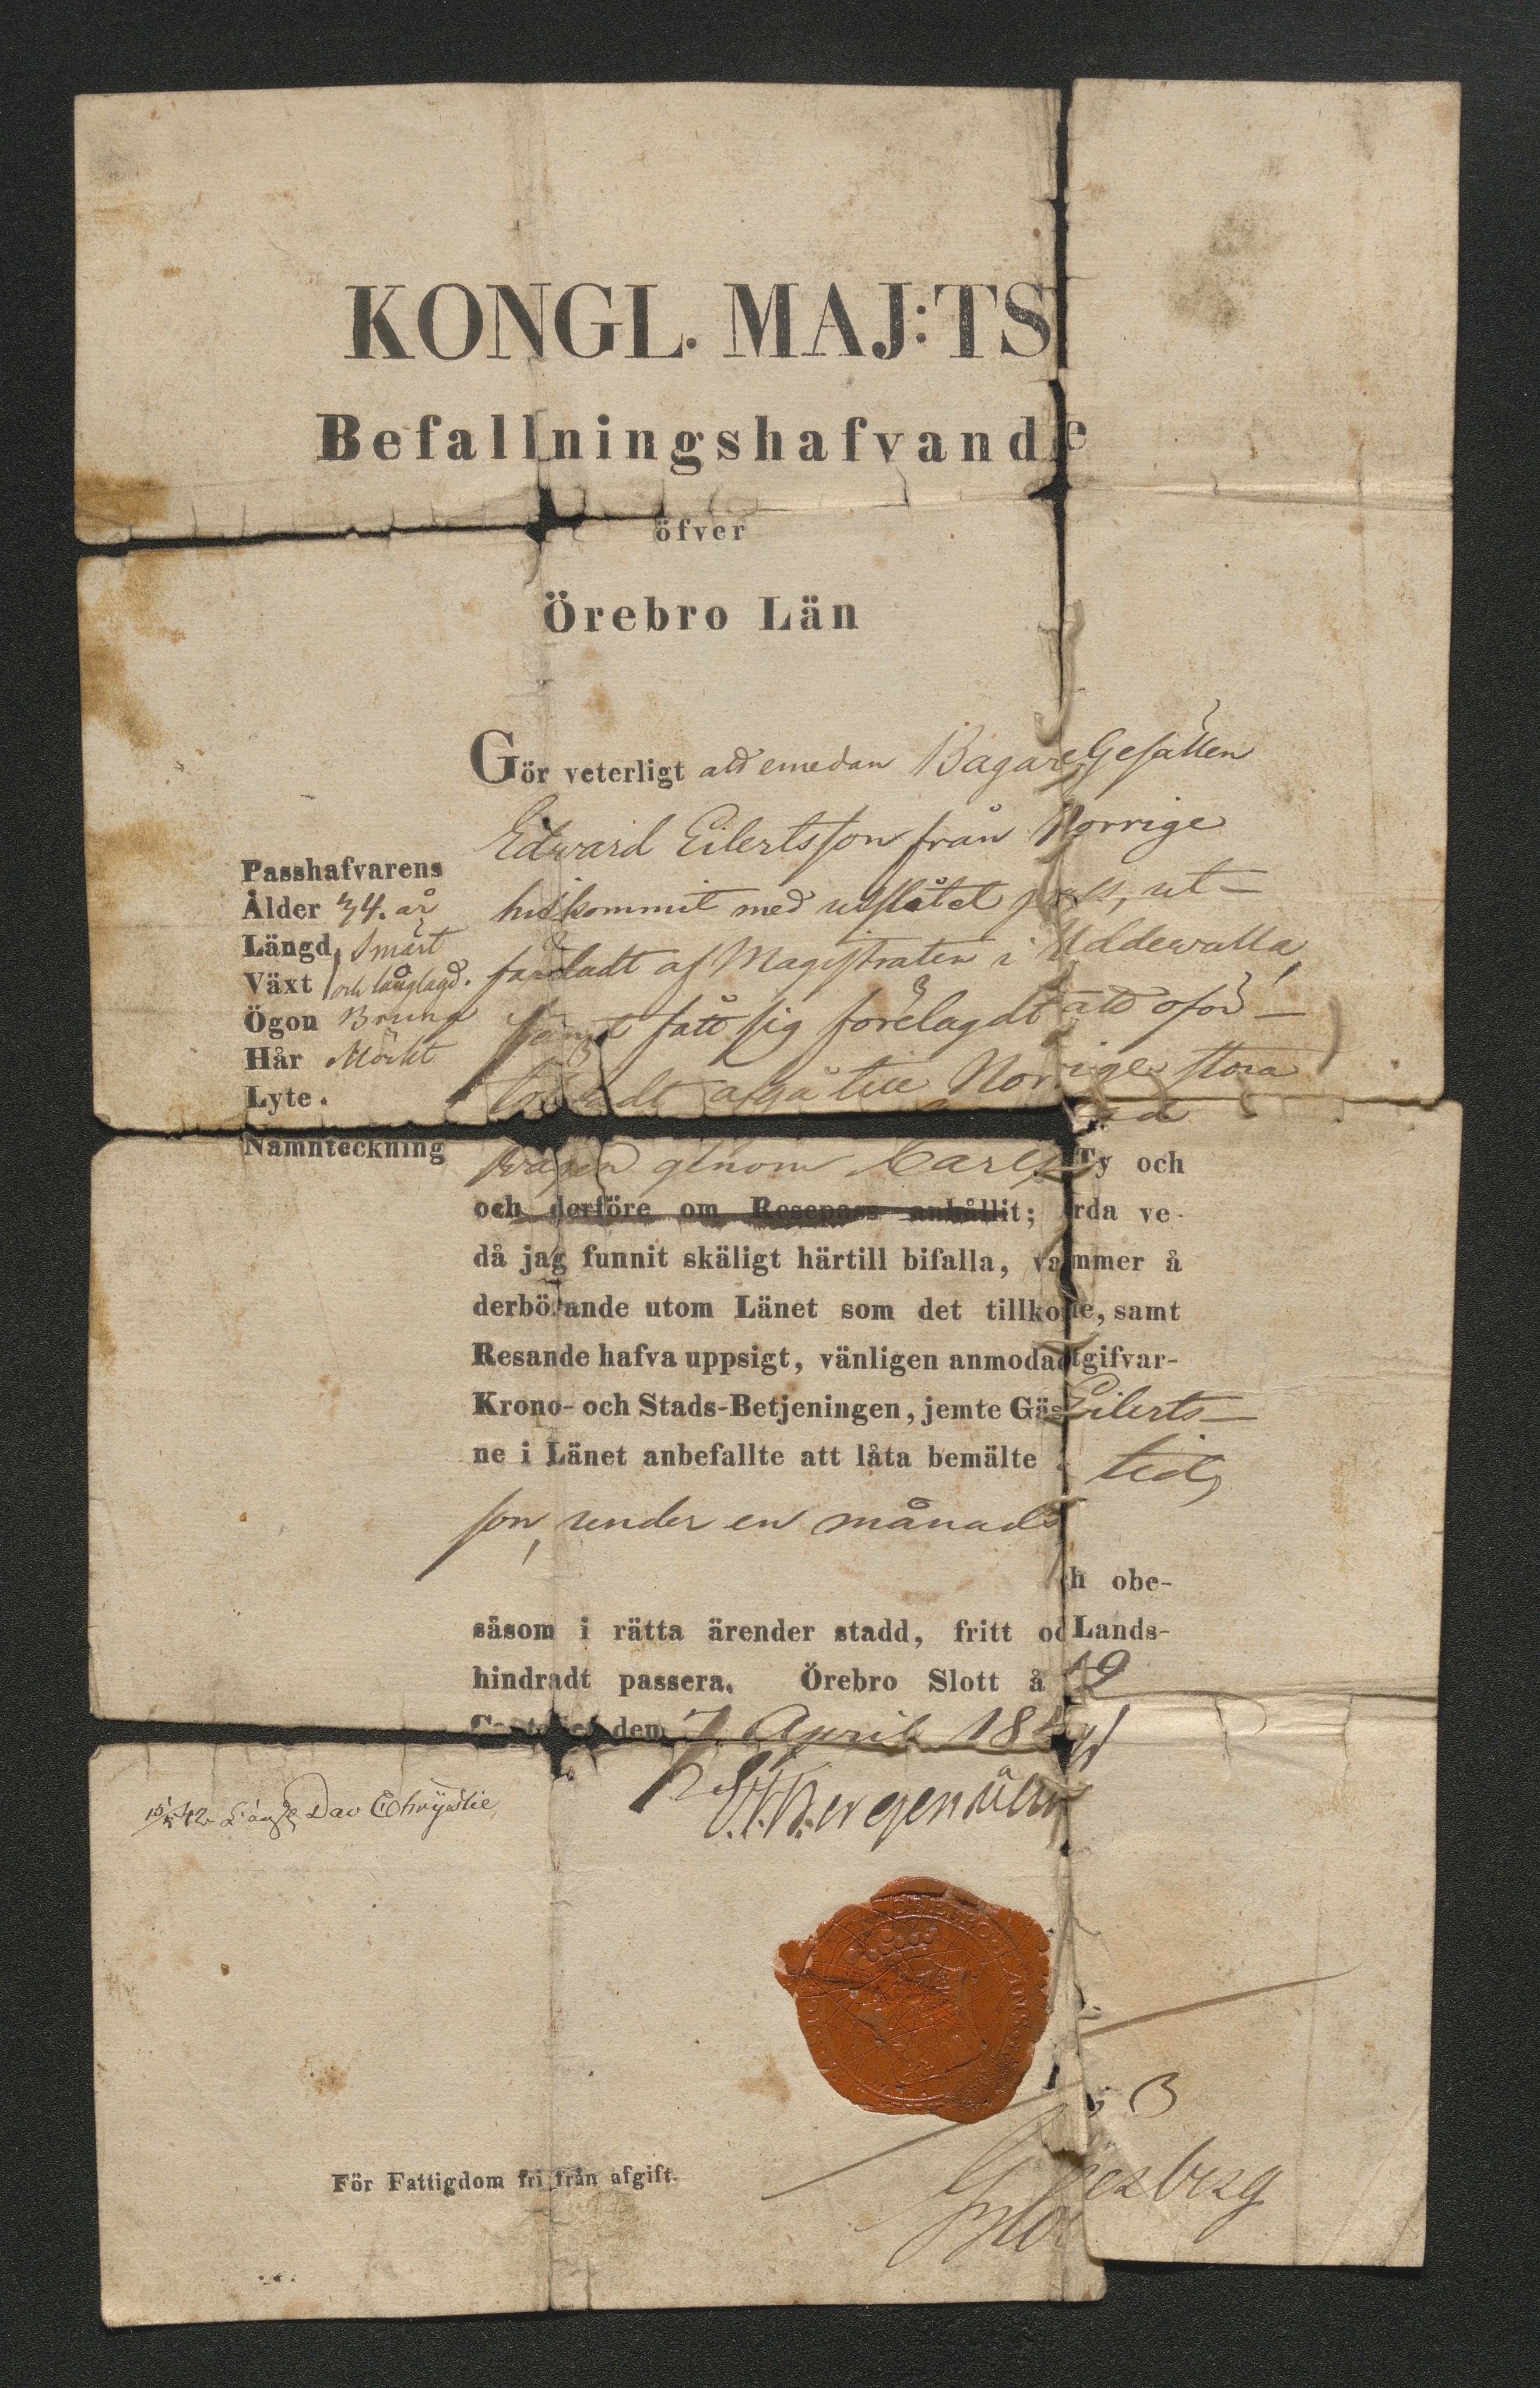 KONGL. MAJ:TS
Befallningshafvande
öfver
Örebro Län
Gör veterligt att emedan Bagare Gesällen
Edward Eilertsson från Norrige
hitkommit med utslitet pass, ut-
färdadt af Magistraten i Uddewalla,
samt fått sig förelagdt att oför-
afgå till Norrige stora
vägen genom Carlstad
och derföre om Resepass anhållit; Ty och
då jag funnit skäligt härtill bifalla, varda ve-
derbörande utom Länet som det tillkommer å
Resande hafva uppsigt, vänligen anmodade, samt
Krono- och Stads-Betjeningen, jemte Gästgifvar-
ne i Länet anbefallte att låta bemälte Eilerts-
son, under en månads tid,
såsom i rätta ärender stadd, fritt och obe-
hindradt passera. Örebro Slott å Lands-
Contoiret den 7 April 1842
Passhafvarens
Ålder 34. år
Längd Smärt
Växt och långlagd.
Ögon Bruna
Hår Mörkt
Lyte.
Namnteckning
42 Dav Chrystie
För Fattigdom fri från afgift.